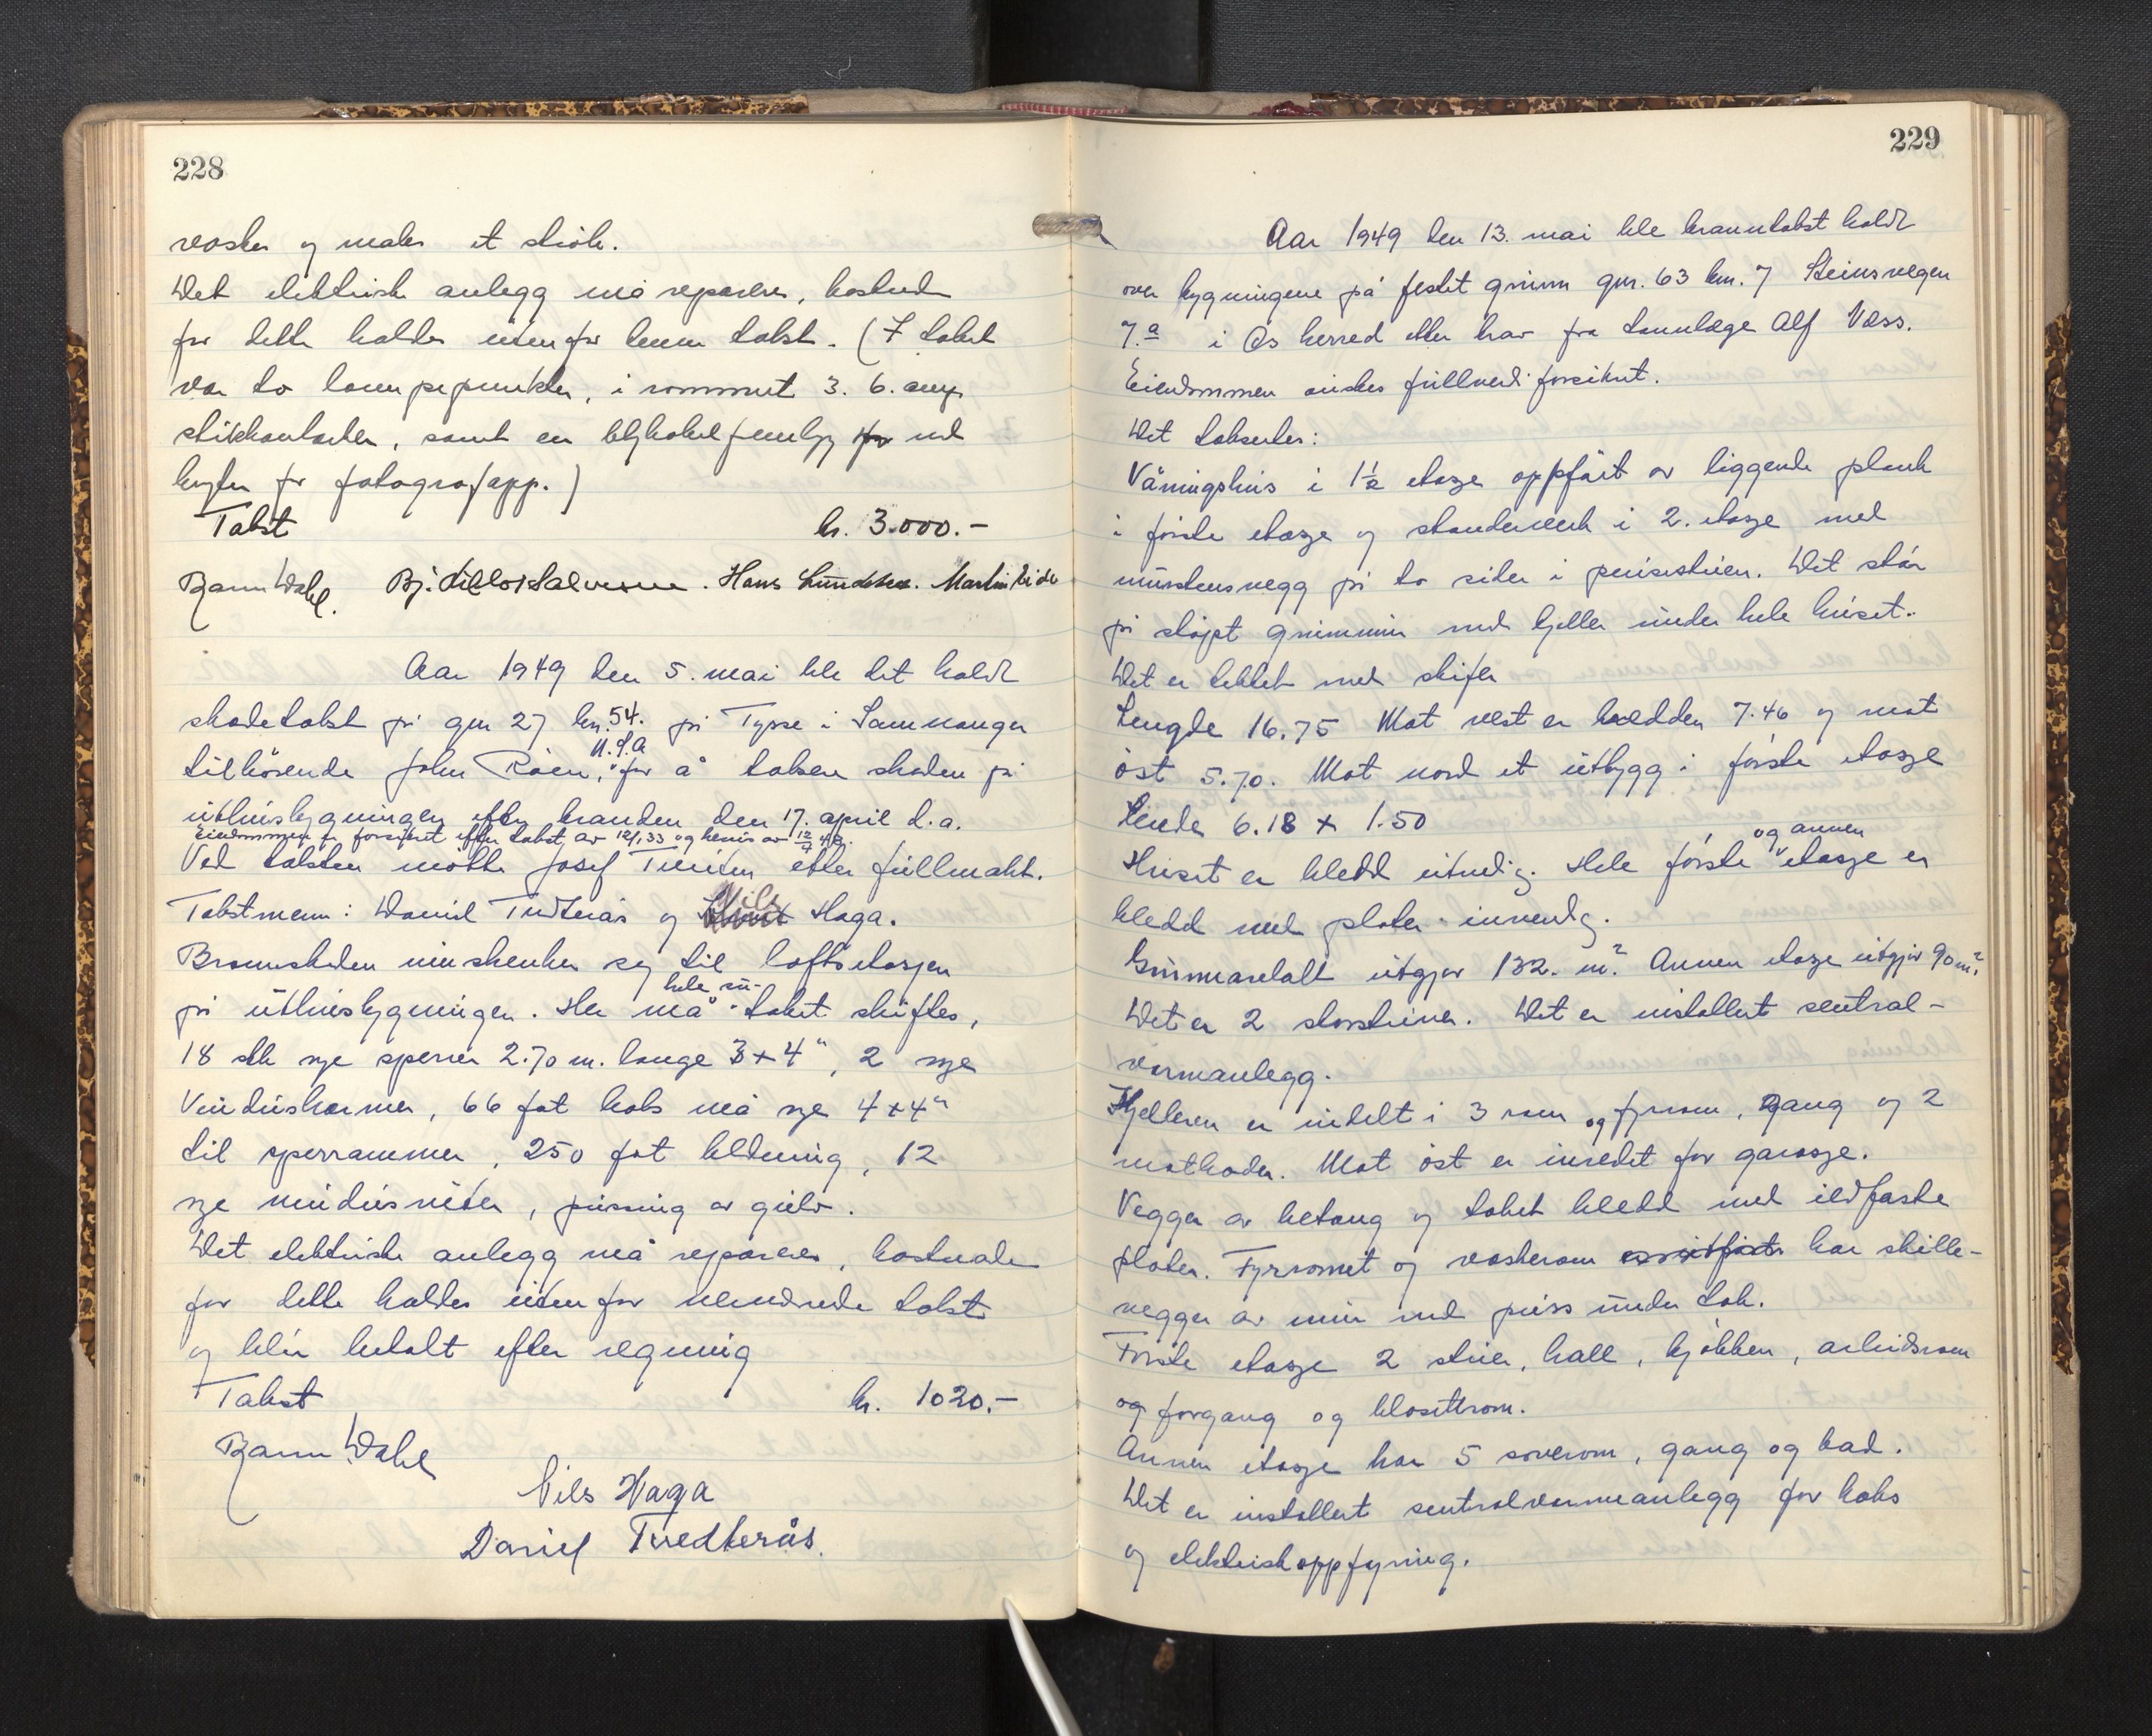 228
vasker og maler et strøk.
Det elektriske anlegg må repareres, kostnad
for dette holdes utenfor denne takst. (I taket
var to lampepunkter, i rommet 3. 6. amp
stikkontakter, samt en blykabel fremlegg med
bryter for fotografapp.)
Takst kr. 3.000.-
Bjarne Dahl. Bj. Lilletvedt Halvorsen. Hans Lundetræ. Martin Eide
Aar 1949 den 5. mai ble det holdt
skadetakst på gnr 27 bnr. 54. på Tysse i Samnanger
U.S.A
tilhørende John Röen, for å taksere skaden på
uthusbygningen efter branden den 17. april d.a.
Eiendommen er forsikret efter takst av 12/1.33 og bevis av 12/7 48.
Ved taksten møtte Josef Tveiten etter fullmakt.
Takstmenn: Daniel Tvedterås og Nils Haga.
Brannskaden innskrenker seg til loftsetasjen
hele su-
på uthusbygningen. Her må taket skiftes,
18 stk nye sperrer 2.70 m. lange 3 x 4", 2 nye
Vinduskarmer, 66 fot boks må nye 4 x 4"
til sperrammer, 250 fot kledning, 12
nye vindusruter, pussing av gulv.
Det elektriske anlegg må repareres, kostnade
for dette holdes utenfor nevnte takst
og blir betalt efter regning
Takst kr. 1020.-
Bjarne Dahl
Nils Haga
Daniel Tvedterås.
229
Aar 1949 den 13. mai ble branntakst holdt
over bygningene på festet grunn gnr. 63 bnr. 7 Steinsvegen
7.a i Os herred etter krav fra tannlæge Alf Væss.
Eiendommen ønskes fullverdiforsikret.
Det takseres:
Våningshus i 1½ etasje oppført av liggende plank
i første etasje og standerverk i 2. etasje med
murstensvegg på to sider i peisestuen. Det står
på støpt grunnmur med kjeller under hele huset.
Det er tekket med skifer
Lengde 16.75 Mot vest er bredden 7.46 og mot
øst 5.70. Mot nord et utbygg i første etasje
Leide 6.18 x 1.50
og annen
Huset er kledd utvendig. Hele første etasje er
kledd med plater innvendig.
Grunnarealt utgjør 132. m². Annen etasje utgjør 90 m².
Det er 2 skorsteiner. Det er installert sentral-
varmanlegg.
Kjelleren er inndelt i 3 rom og fyrrom, gang og 2
matboder. Mot øst er inredet for garasje.
Vegger av betong og taket kledd med ildfaste
plater. Fyrromet og vaskerom har skille-
vegger av mur med puss under tak.
Første etasje 2 stuer, hall, kjøkken, arbeidsrom
og forgang og klosettrom.
Annen etasje har 5 soverom, gang og bad.
Det er installert sentralvarmeanlegg for koks
og elektrisk oppfyring.